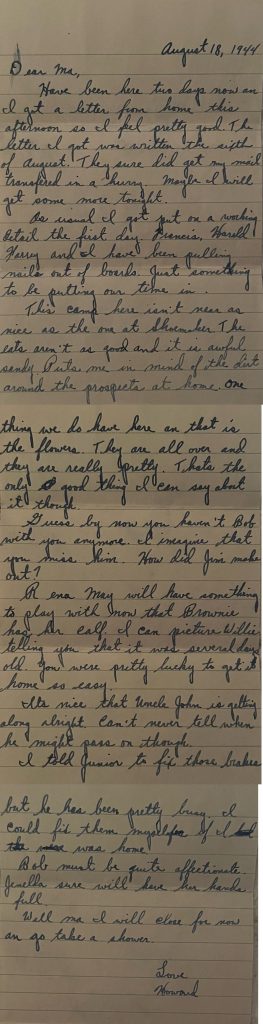 August 18, 1944
Dear Ma,
Have been here two days now an
I got a letter from home this
afternoon so I feel pretty good. The
letter I got was written the sixth
of August. They sure did get my mail
transfered in a hurry. Maybe I will
get some more tonight.
As usual I got put on a working
detail the first day. Francis, Harold
Harry and I have been pulling
nails out of boards. Just something
to be putting our time in.
This camp here isn't near as
nice as the one at Shoemaker. The
eats aren't as good and it is awful
sandy. Puts me in mind of the dirt
around the prospects at home. One
thing we do have here an that is
the flowers. They are all over and
they are really pretty. Thats the
only good thing I can say about
it though.
Guess by now you haven't Bob
with you anymore. I imagine that
you miss him. How did Jim make
out?
Rena May will have something
to play with now that Brownie
has her calf. I can picture Willie
telling you that it was several days
old. You were pretty lucky to get it
home so easy.
Its nice that Uncle John is getting
along alright. Can't never tell when
he might pass on though.
I told Junior to fix those brakes
but he has been pretty busy. I
could fix them myself if I
was home.
Bob must be quite affectionate.
Jenella sure will have her hands
full.
Well ma I will close for now
an go take a shower.
Love
Howard